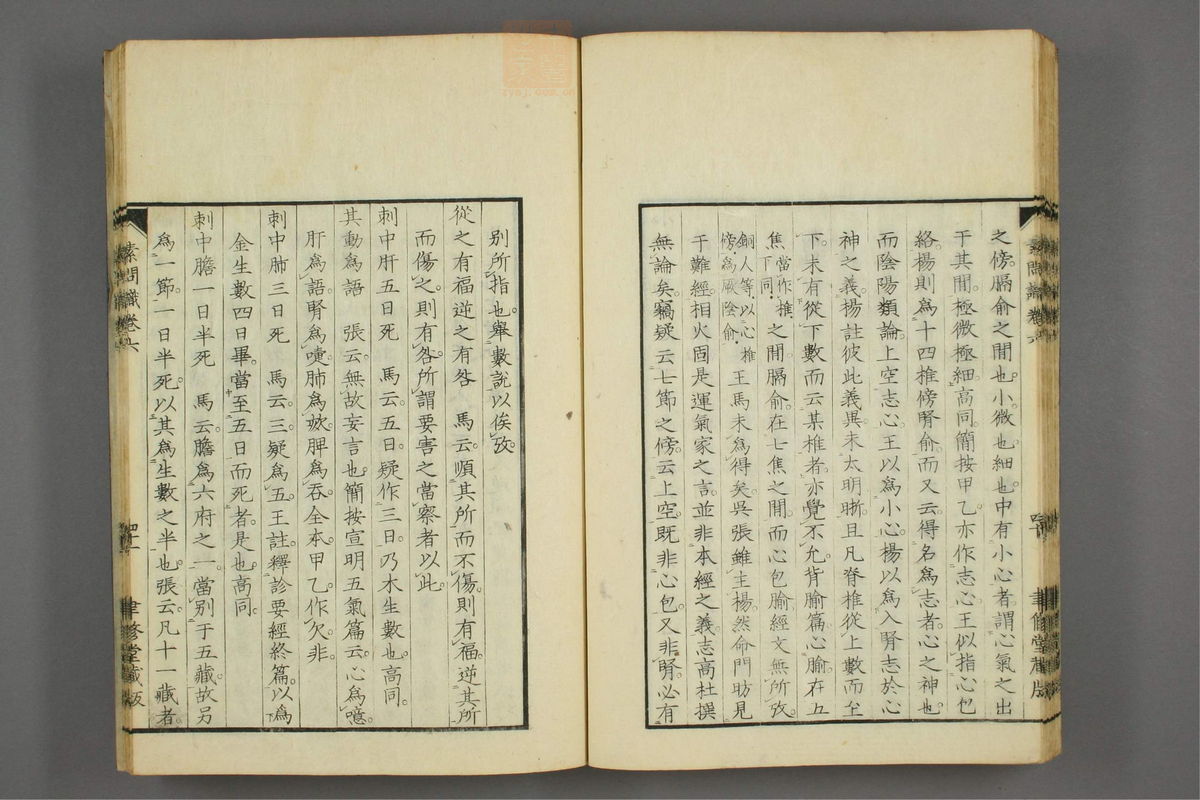 之傍。膈俞之間也。小。微也。細也。中有小心者。謂心氣之出
于其間。極微極細。高同。簡按甲乙。亦作志心。王似指心包
絡。楊則爲十四椎傍腎俞。而又云。得名爲志者。心之神也。
而陰陽類論。上空志心。王以爲小心。楊以爲入腎志於心
神之義。楊註彼此義異。未太明晰。且凡脊椎從上數而至
下。未有從下數而云某椎者。亦覺不允。背腧篇。心腧在五
焦當作椎下同之間。膈俞在七焦之間。而心包腧。經文無所攷
銅人等以心椎傍爲厥陰俞王馬未爲得矣。吳張雖主楊。然命門昉見
于難經。相火固是運氣家之言。並非本經之義。志高杜撰
無論矣。竊疑云七節之傍。云上空。既非心包。又非腎。必有
素問識卷六
聿修堂藏版
別所指也。舉數說以俟攷。
從之有福逆之有咎 馬云。順其所而不傷。則有福。逆其所
而傷之。則有咎。所謂要害之當察者以此。
刺中肝五日死 馬云。五日。疑作三日。乃木生數也。高同。
其動爲語 張云。無故妄言也。簡按宣明五氣篇云。心爲噫。
肝爲語。腎爲嚏。肺爲欬。脾爲吞。全本甲乙。作欠。非。
刺中肺三日死 馬云。三。疑爲五。王註釋診要經終篇。以爲
金生數四日畢。當至五日而死者。是也。高同。
刺中膽一日半死 馬云。膽爲六府之一。當別于五藏。故另
爲一節。一日半死。以其爲生數之半也。張云。凡十一藏者。
素問識卷六
四十一
聿修堂藏版